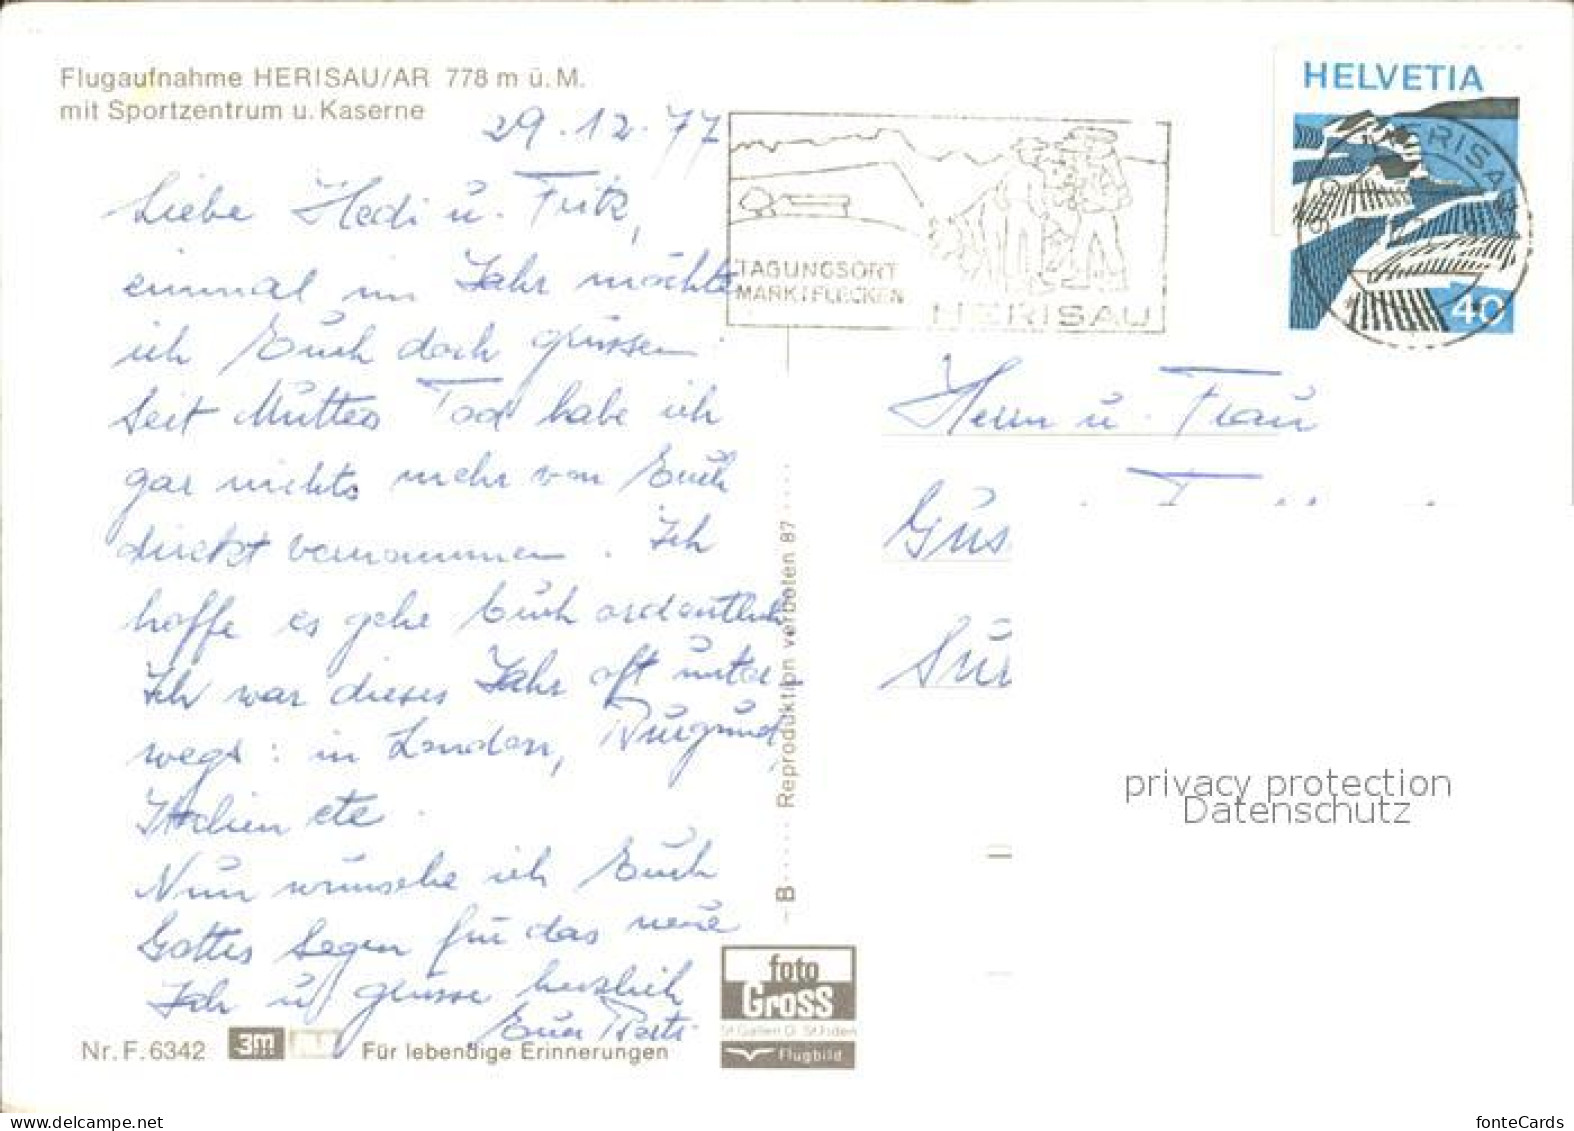 Flugaufnahme HERISAU/AR 778 m ü.M.
mit Sportzentrum u. Kaserne
29.12.77
Liebe Hedi u. Fritz,
einmal im Jahr möchte
ich Euch doch grüssen.
Seit Mutters Tod habe ich
gar nichts mehr von Euch
direkt vernommen. Ich
hoffe es gehe Euch ordentlich
Ich war dieses Jahr oft unter-
wegs: in London, Burgund,
Italien etc.
Nun wünsche ich Euch
Gottes Segen für das neue
Jahr u. grüsse herzlich
Euer
Nr. F. 6342 3m Für lebendige Erinnerungen
TAGUNGSORT
MARKTFLECKEN
HERISAU
HELVETIA
HERISAU
40
Herrn u. Frau
B Reproduktion verboten 87
foto
Gross
St. Gallen O. St. Fiden
Flugbild
privacy protection
Datenschutz
www.delcampe.net
fonteCards